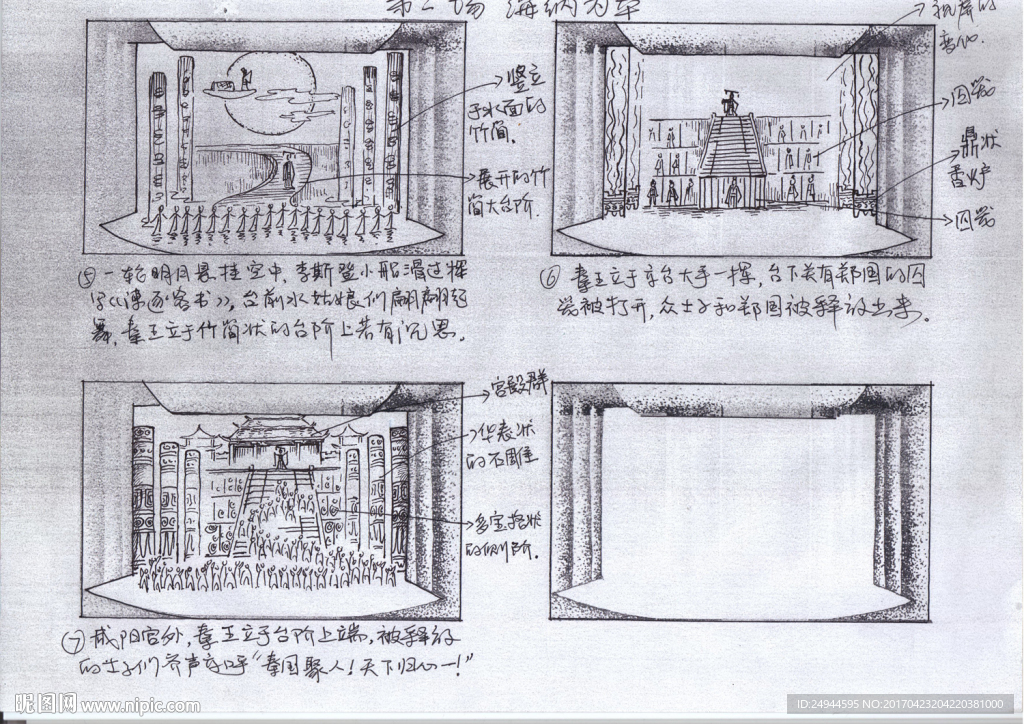 第二场 海纳为牢
视屏的
变化.
竖立
于水面的
竹简.
展开的竹
简大台阶.
囚笼
鼎状
香炉
囚笼
⑤一轮明月悬挂空中,李斯登小船漂过挥
写《谏逐客书》,台前水姑娘们翩翩起
舞,秦王立于竹简状的台阶上若有沉思。
⑥秦王立于高台大手一挥,台下关有郑国的囚
笼被打开,众士子和郑国被释放出来。
宫殿群
华表状
的石雕
多宝格状
的侧阶.
⑦咸阳宫外,秦王立于台阶上端,被释放
的士子们齐声高呼“秦国聚人!天下归心一!”
昵图网 www.nipic.com
ID:24944595 NO:20170423204220381000